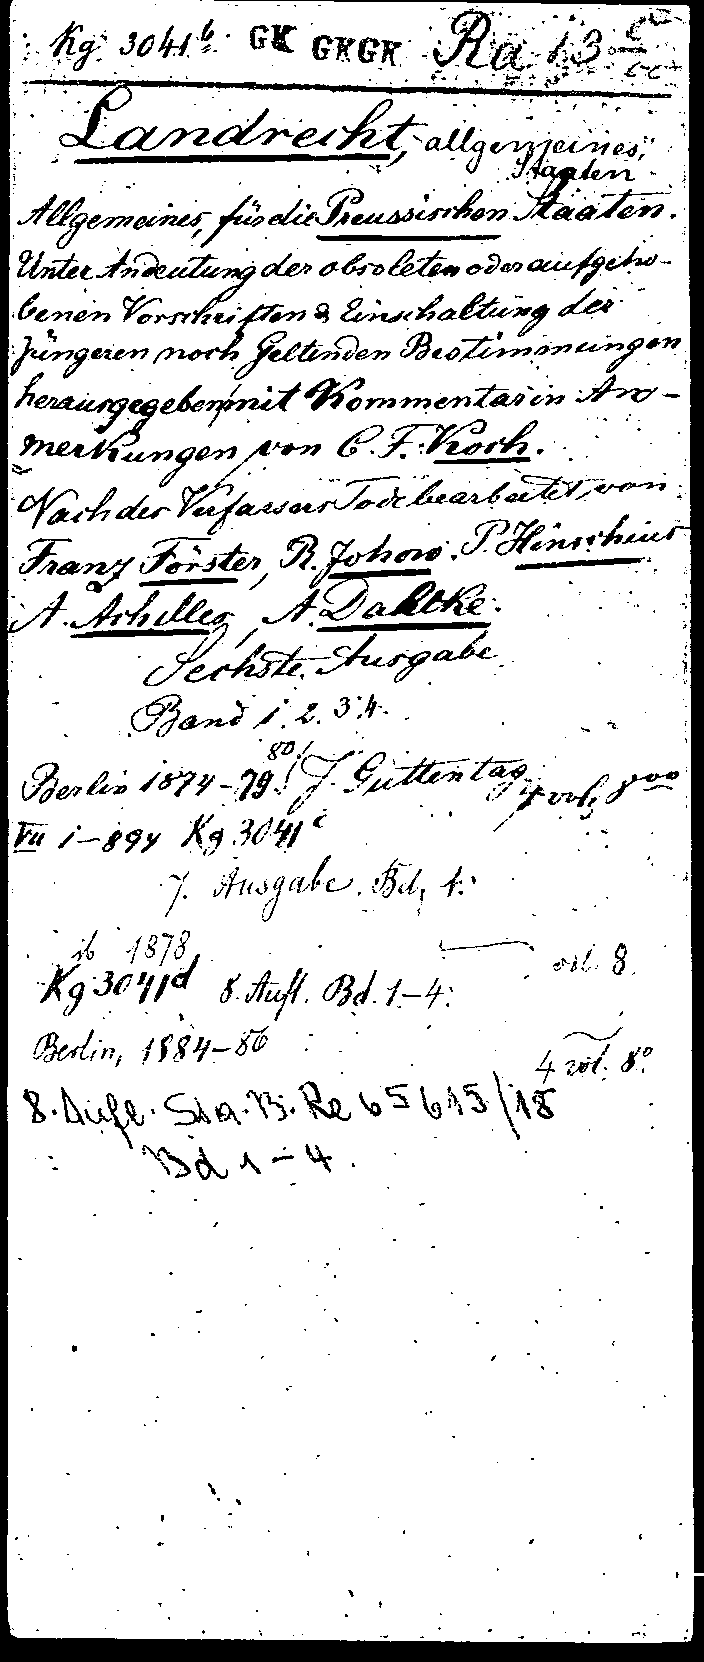 Kg 3041b. GK GKGK Ra 13
Landrecht, allgemeines,
Staaten
Allgemeines, für die Preussischen Staaten.
Unter Andeutung der obsoleten oder aufgeho-
benen Vorschriften & Einschaltung der
jüngeren noch geltenden Bestimmungen
herausgegeben mit Kommentar in An-
merkungen von C. F. Koch.
Nach des Verfassers Tode bearbeitet von
Franz Förster, R. Johow. P. Hinschius
A. Achilles, A. Dahlke.
Sechste Ausgabe
Band 1. 2. 3. 4.
80!
Berlin 1874-79! J. Guttentag 4 vol. 8°°
1-894 Kg 3041c
7. Ausgabe. Bd, 1.
ib 1878 vol. 8.
Kg 3041d 8. Aufl. Bd. 1-4.
Berlin, 1884-86 4 vol. 8°.
8. Aufl. Sta. B. Re 65615/18
Bd 1-4.